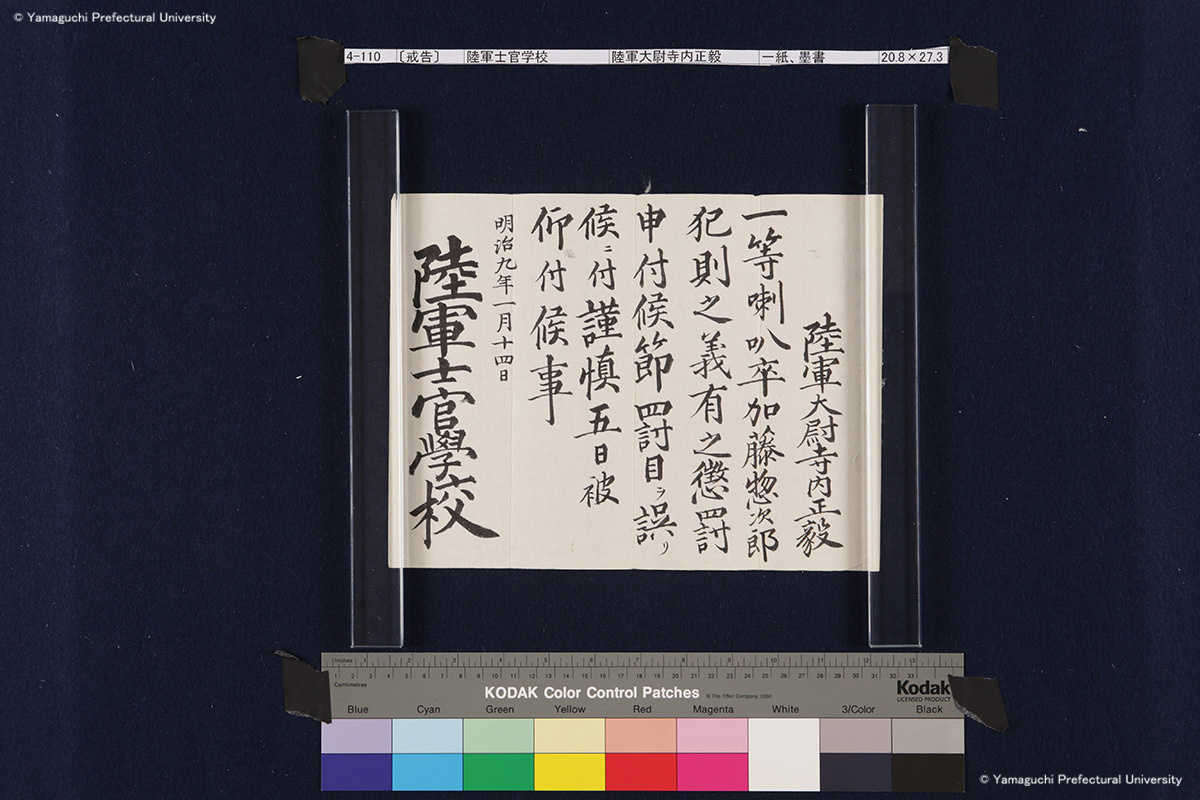 © Yamaguchi Prefectural University
4-110 〔戒告〕 陸軍士官学校 陸軍大尉寺内正毅 一紙、墨書 20.8×27.3
陸軍大尉寺内正毅
一等喇叭卒加藤惣次郎
犯則之義有之懲罰
申付候節罰目ヲ誤リ
候ニ付謹慎五日被
仰付候事
明治九年一月十四日
陸軍士官學校
Inches 1 2 3 4 5 6 7 8 9 10 11 12 13
Centimetres 1 2 3 4 5 6 7 8 9 10 11 12 13 14 15 16 17 18 19 20 21 22 23 24 25 26 27 28 29 30 31 32 33 34
KODAK Color Control Patches © The Tiffen Company, 2000
Kodak
LICENSED PRODUCT
Blue Cyan Green Yellow Red Magenta White 3/Color Black
© Yamaguchi Prefectural University